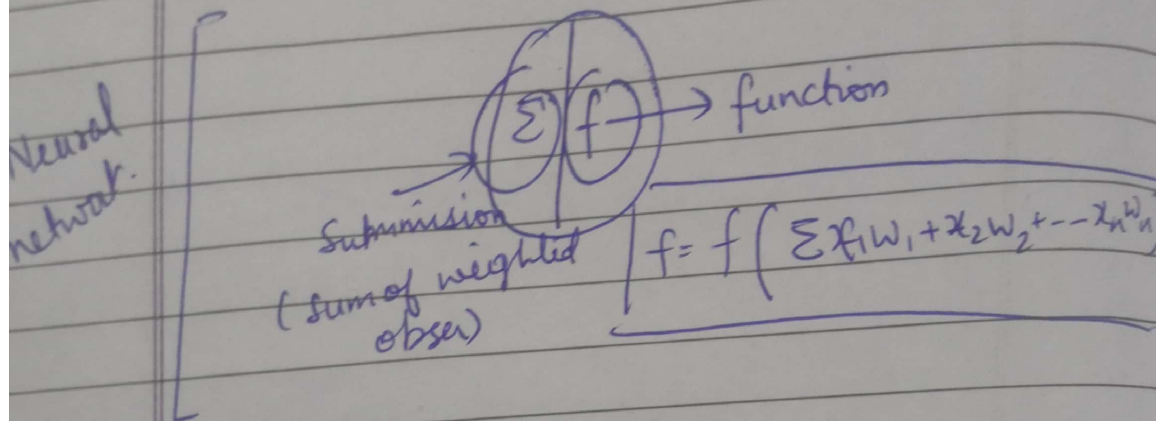 Neural
netwok.
Σ f → function
Submmision
(sum of weighted
obser)
f = f ( Σ x₁w₁ + x₂w₂ + --- xₙwₙ